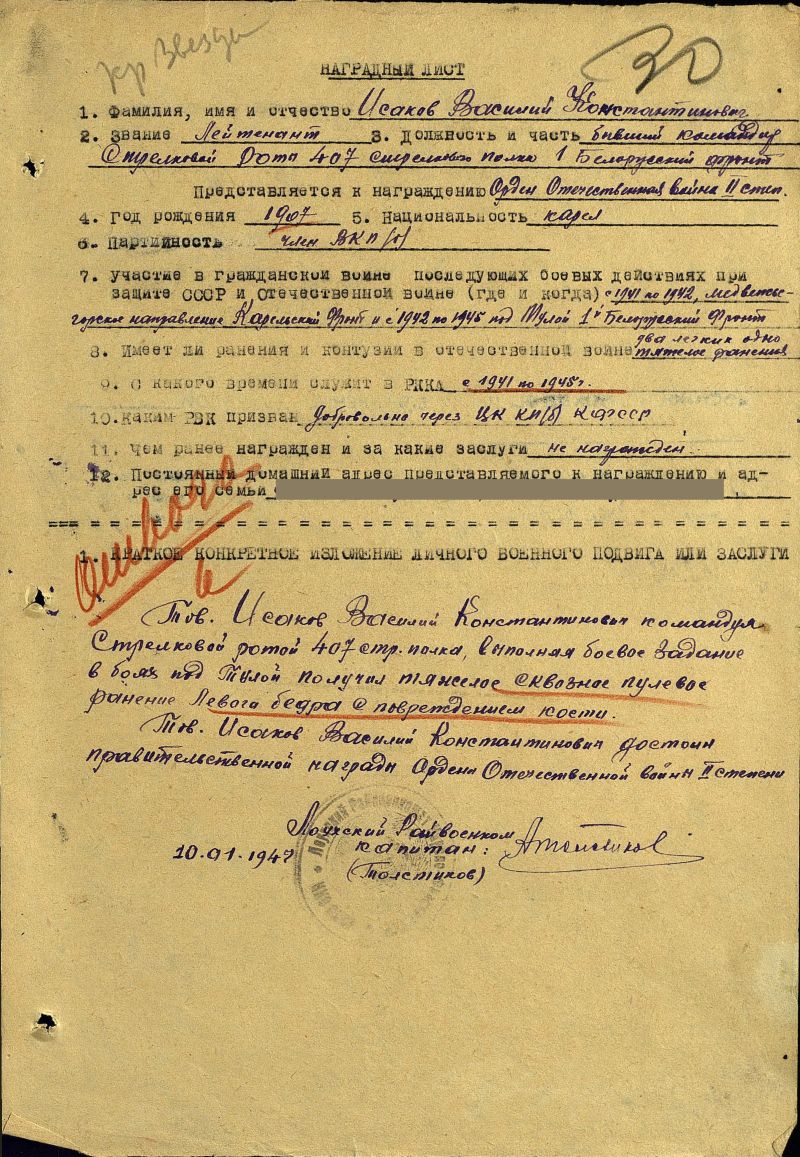 кр Звезды
30
НАГРАДНЫЙ ЛИСТ
1. Фамилия, имя и отчество Исаков Василий Константинович
2. Звание Лейтенант 3. Должность и часть бывший командир
Стрелковой роты 407 стрелкового полка 1 Белорусский фронт
Представляется к награждению Орден Отечественная война II степ.
4. Год рождения 1907 5. Национальность карел
6. Партийность член ВКП(б)
7. Участие в гражданской войне последующих боевых действиях при
защите СССР и отечественной войне (где и когда) с 1941 по 1942, медвежье-
горское направление Карельский Фронт и с 1942 по 1945 под Тулой 1й Белорусский Фронт
8. Имеет ли ранения и контузии в отечественной войне два легких одно
тяжелое ранения
9. С какого времени служит в РККА с 1941 по 1945 г.
10. Каким РВК призван добровольно через ЦК КП(б) КФССР
11. Чем ранее награжден и за какие заслуги не награжден
12. Постоянный домашний адрес представляемого к награждению и ад-
рес его семьи
1. КРАТКОЕ КОНКРЕТНОЕ ИЗЛОЖЕНИЕ ЛИЧНОГО ВОЕННОГО ПОДВИГА ИЛИ ЗАСЛУГИ
Тов. Исаков Василий Константинович командуя
Стрелковой ротой 407 стр. полка, выполняя боевое задание
в боях под Тулой получил тяжелое сквозное пулевое
ранение Левого бедра с повреждением кости.
Тов. Исаков Василий Константинович достоин
правительственной награды Ордена Отечественной войны II степени
Лоухский Райвоенком
10.01.1947 капитан:
(Толстиков)